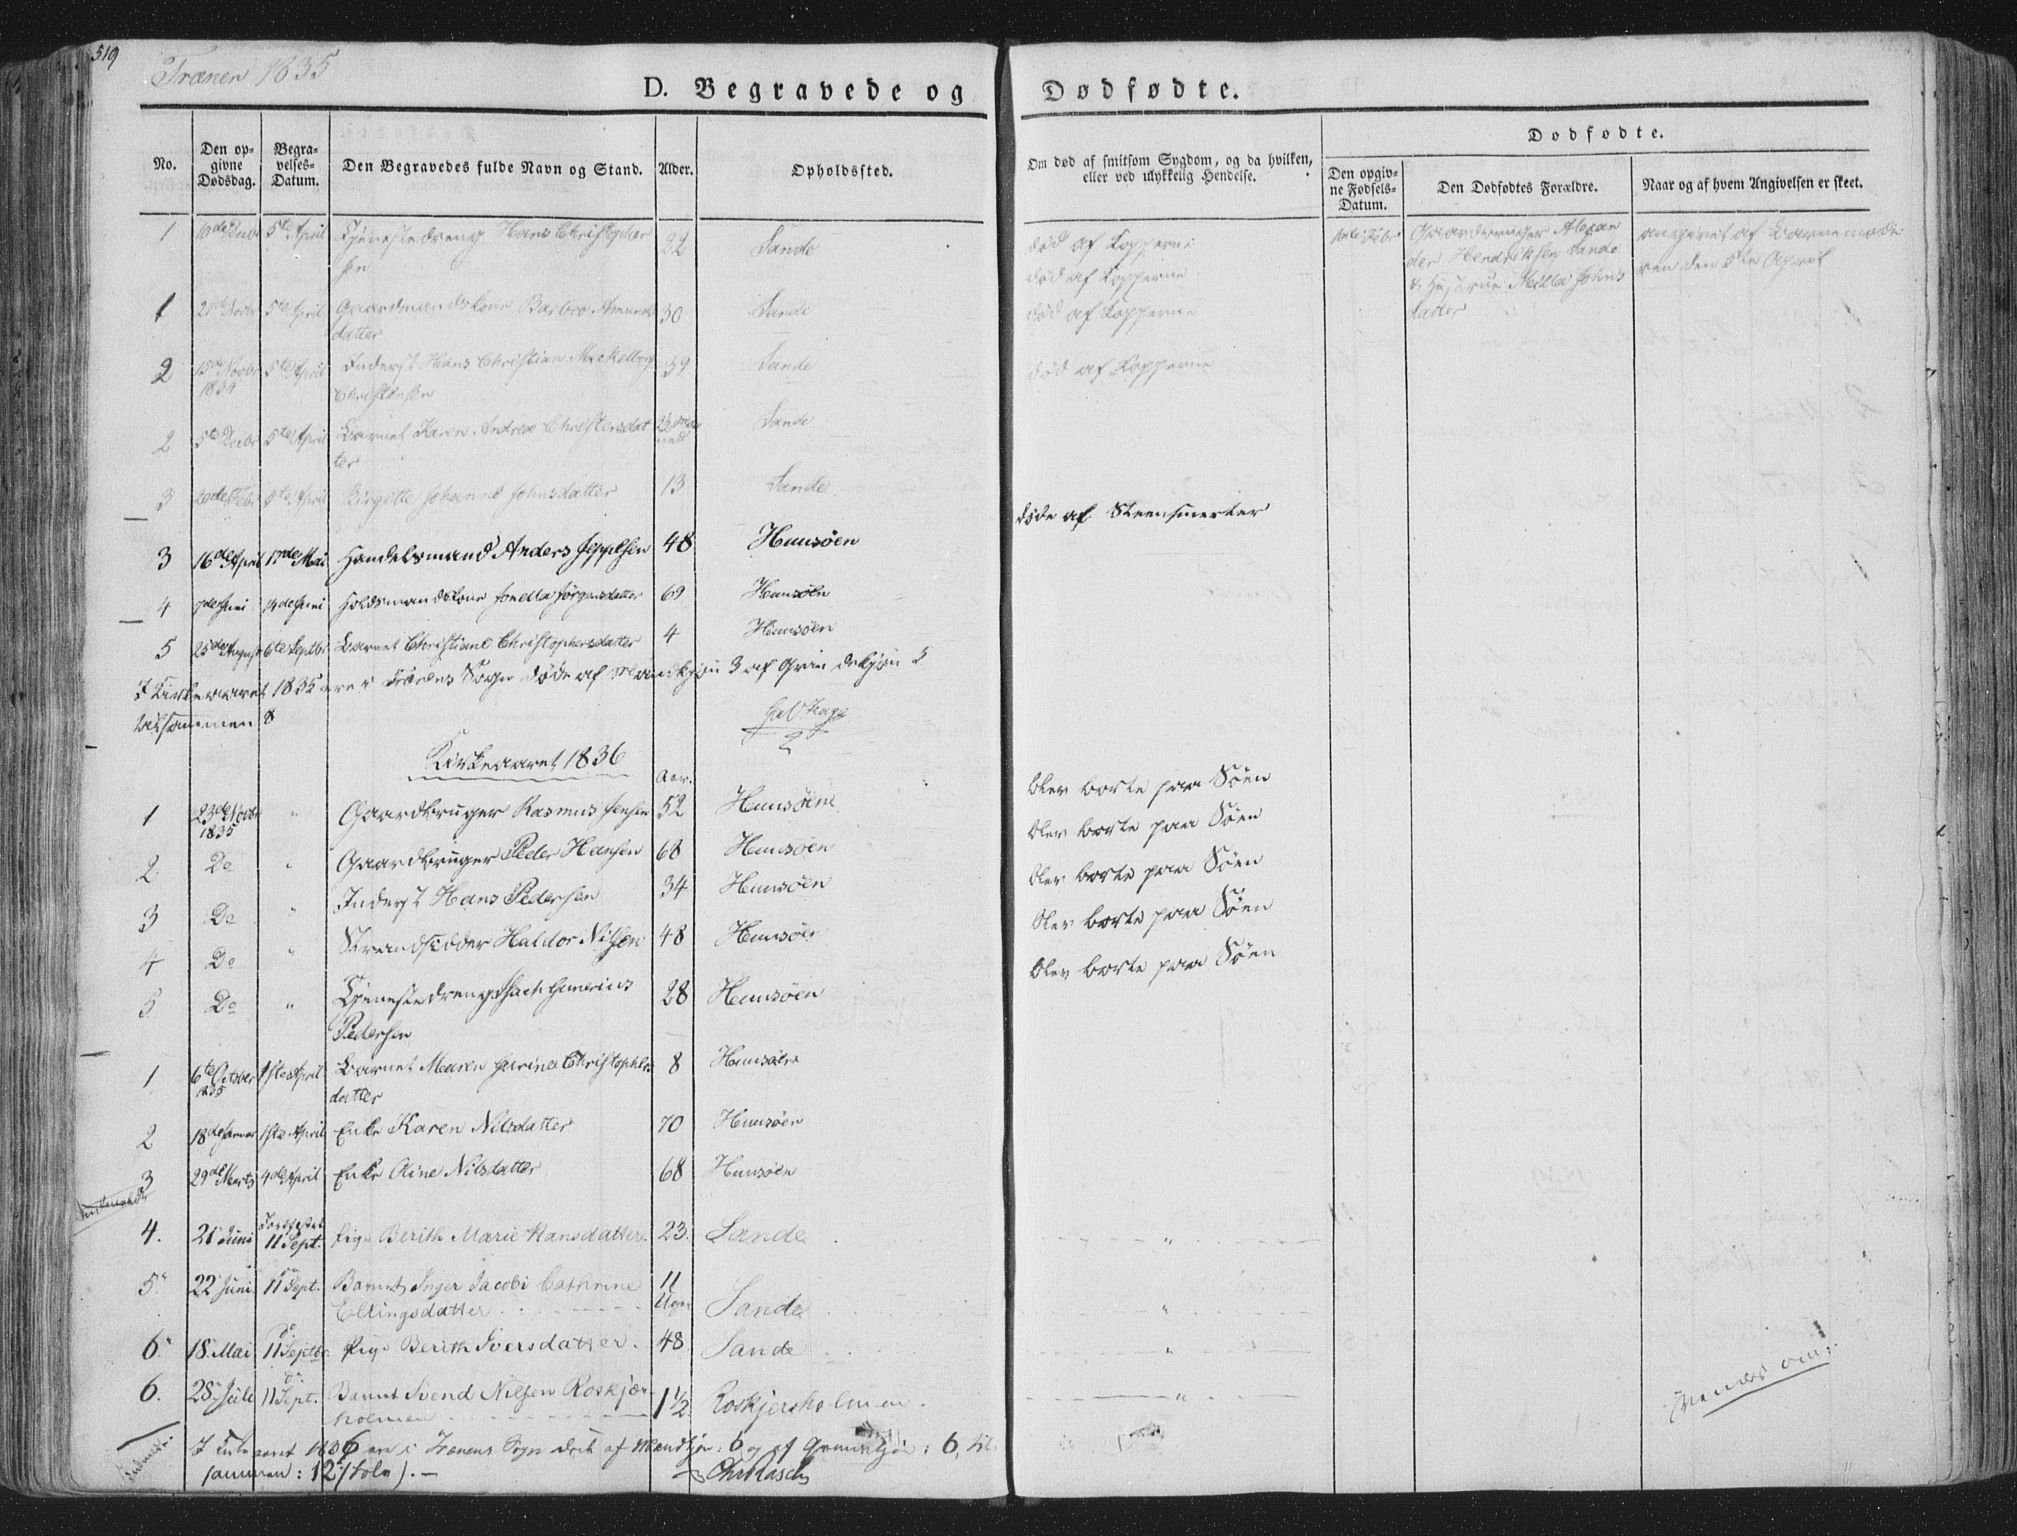 519
Trænen 1835
D. Begravede og Dødfødte.
No.
Den opgivne Dødsdag.
Begravelses-Datum.
Den Begravedes fulde Navn og Stand.
Alder.
Opholdssted.
Om død af smitsom Sygdom, og da hvilken, eller ved ulykkelig Hendelse.
Dødfødte.
Den opgivne Fødsels-Datum.
Den Dødfødtes Forældre.
Naar og af hvem Angivelsen er skeet.
1 5te April Tjenestedreng Hans Christophersen 22 Sande død af Kopperne
død af Kopperne
Gaardbruger Alexander Hendriksen Sande & Hustrue Johnsdatter
angivet af Barnemoderen den 5te April
1 5te April Gaardmandskone Barbro Amundsdatter 30 Sande død af Kopperne
2 15de Novbr 1834 5te April Inderst Hans Christian Christensen 39 Sande død af Kopperne
2 5te Decbr 5te April Barnet Karen Andrea Christensdatter Sande
3 20de Febr 5te April Birgitte Johanne Johnsdatter 13 Sande
3 16de April 17de Mai Handelsmand Anders Jeppesen 48 Huusøen døde af Steensmerter
4 7de Juni 14de Juni Holdsmandskone Jørgensdatter 69 Huusøen
5 25de August 6te Septbr Barnet Christiane Christophersdatter 4 Huusøen
I Kirkeaaret 1835 ere i Trænens Sogn døde af Mandkjøn 3 af Qvindekjøn 5
tilsammen 8
Kirkeaaret 1836
Aar.
1 23de Novbr 1835 " Gaardbruger Rasmus Jensen 52 Huusøen blev borte paa Søen
2 Do " Gaardbruger Peder Hansen 68 Huusøen blev borte paa Søen
3 Do " Inderst Hans Pedersen 34 Huusøen blev borte paa Søen
4 Do " Strandsidder Haldor Nilsen 48 Huusøen blev borte paa Søen
5 Do " Tjenestedreng Pedersen 28 Huusøen blev borte paa Søen
1 6te October 1835 1ste April Barnet Maren Christophersdatter 8 Huusøen
2 18de Januar 1ste April Enke Karen Nilsdatter 70 Huusøen
3 29de Marts 4de April Enke Oline Nilsdatter 68 Huusøen
4. 21 Juni 11 Sept. Pige Berith Marie Hansdatter. 23. Sande "
5. 22 Juni 11 Sept. Barnet Inger Jacobi Cathrine Ellingsdatter 11 Uger Sande "
6. 18. Mai 11 Septbr. Pige Berith Iversdatter. 48. Sande "
6. 28. Juli 11 Sept. Barnet Svend Nilsen Roskjærholmen 1 1/2 Roskjersholmen. "
I Kirkeaaret 1836 ere i Trænens Sogn døde af Mandkjøn: 6 og af Qvindekjøn: 6, tilsammen: 12 (tolv).
Vendes om: